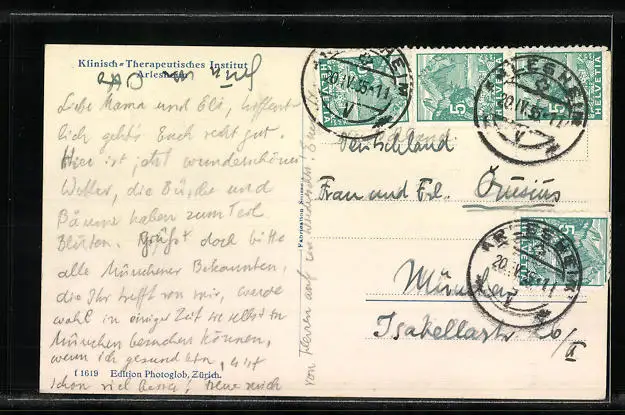 Klinisch-Therapeutisches Institut
Arlesheim
Liebe Mama und Elo, hoffent-
lich geht's Euch recht gut.
Hier ist jetzt wunderschönes
Wetter, die Büsche und
Bäume haben zum Teil
Blüten. Grüßt doch bitte
alle Münchner Bekannten,
die Ihr trefft von mir, werde
wohl in einiger Zeit sie selbst in
München besuchen können,
wenn ich gesund bin, es ist
schon viel besser!
f 1619 Edition Photoglob, Zürich.
von Herzen auf
Fabrication Suisse
ARLESHEIM
20.IV.35-11
V
HELVETIA
5
5
ARLESHEIM
20.IV.35-11
V
5
HELVETIA
Deutschland
Frau und Frl.
5
ARLESHEIM
20.IV.35-11
V
München
Isabellastr. 26/II